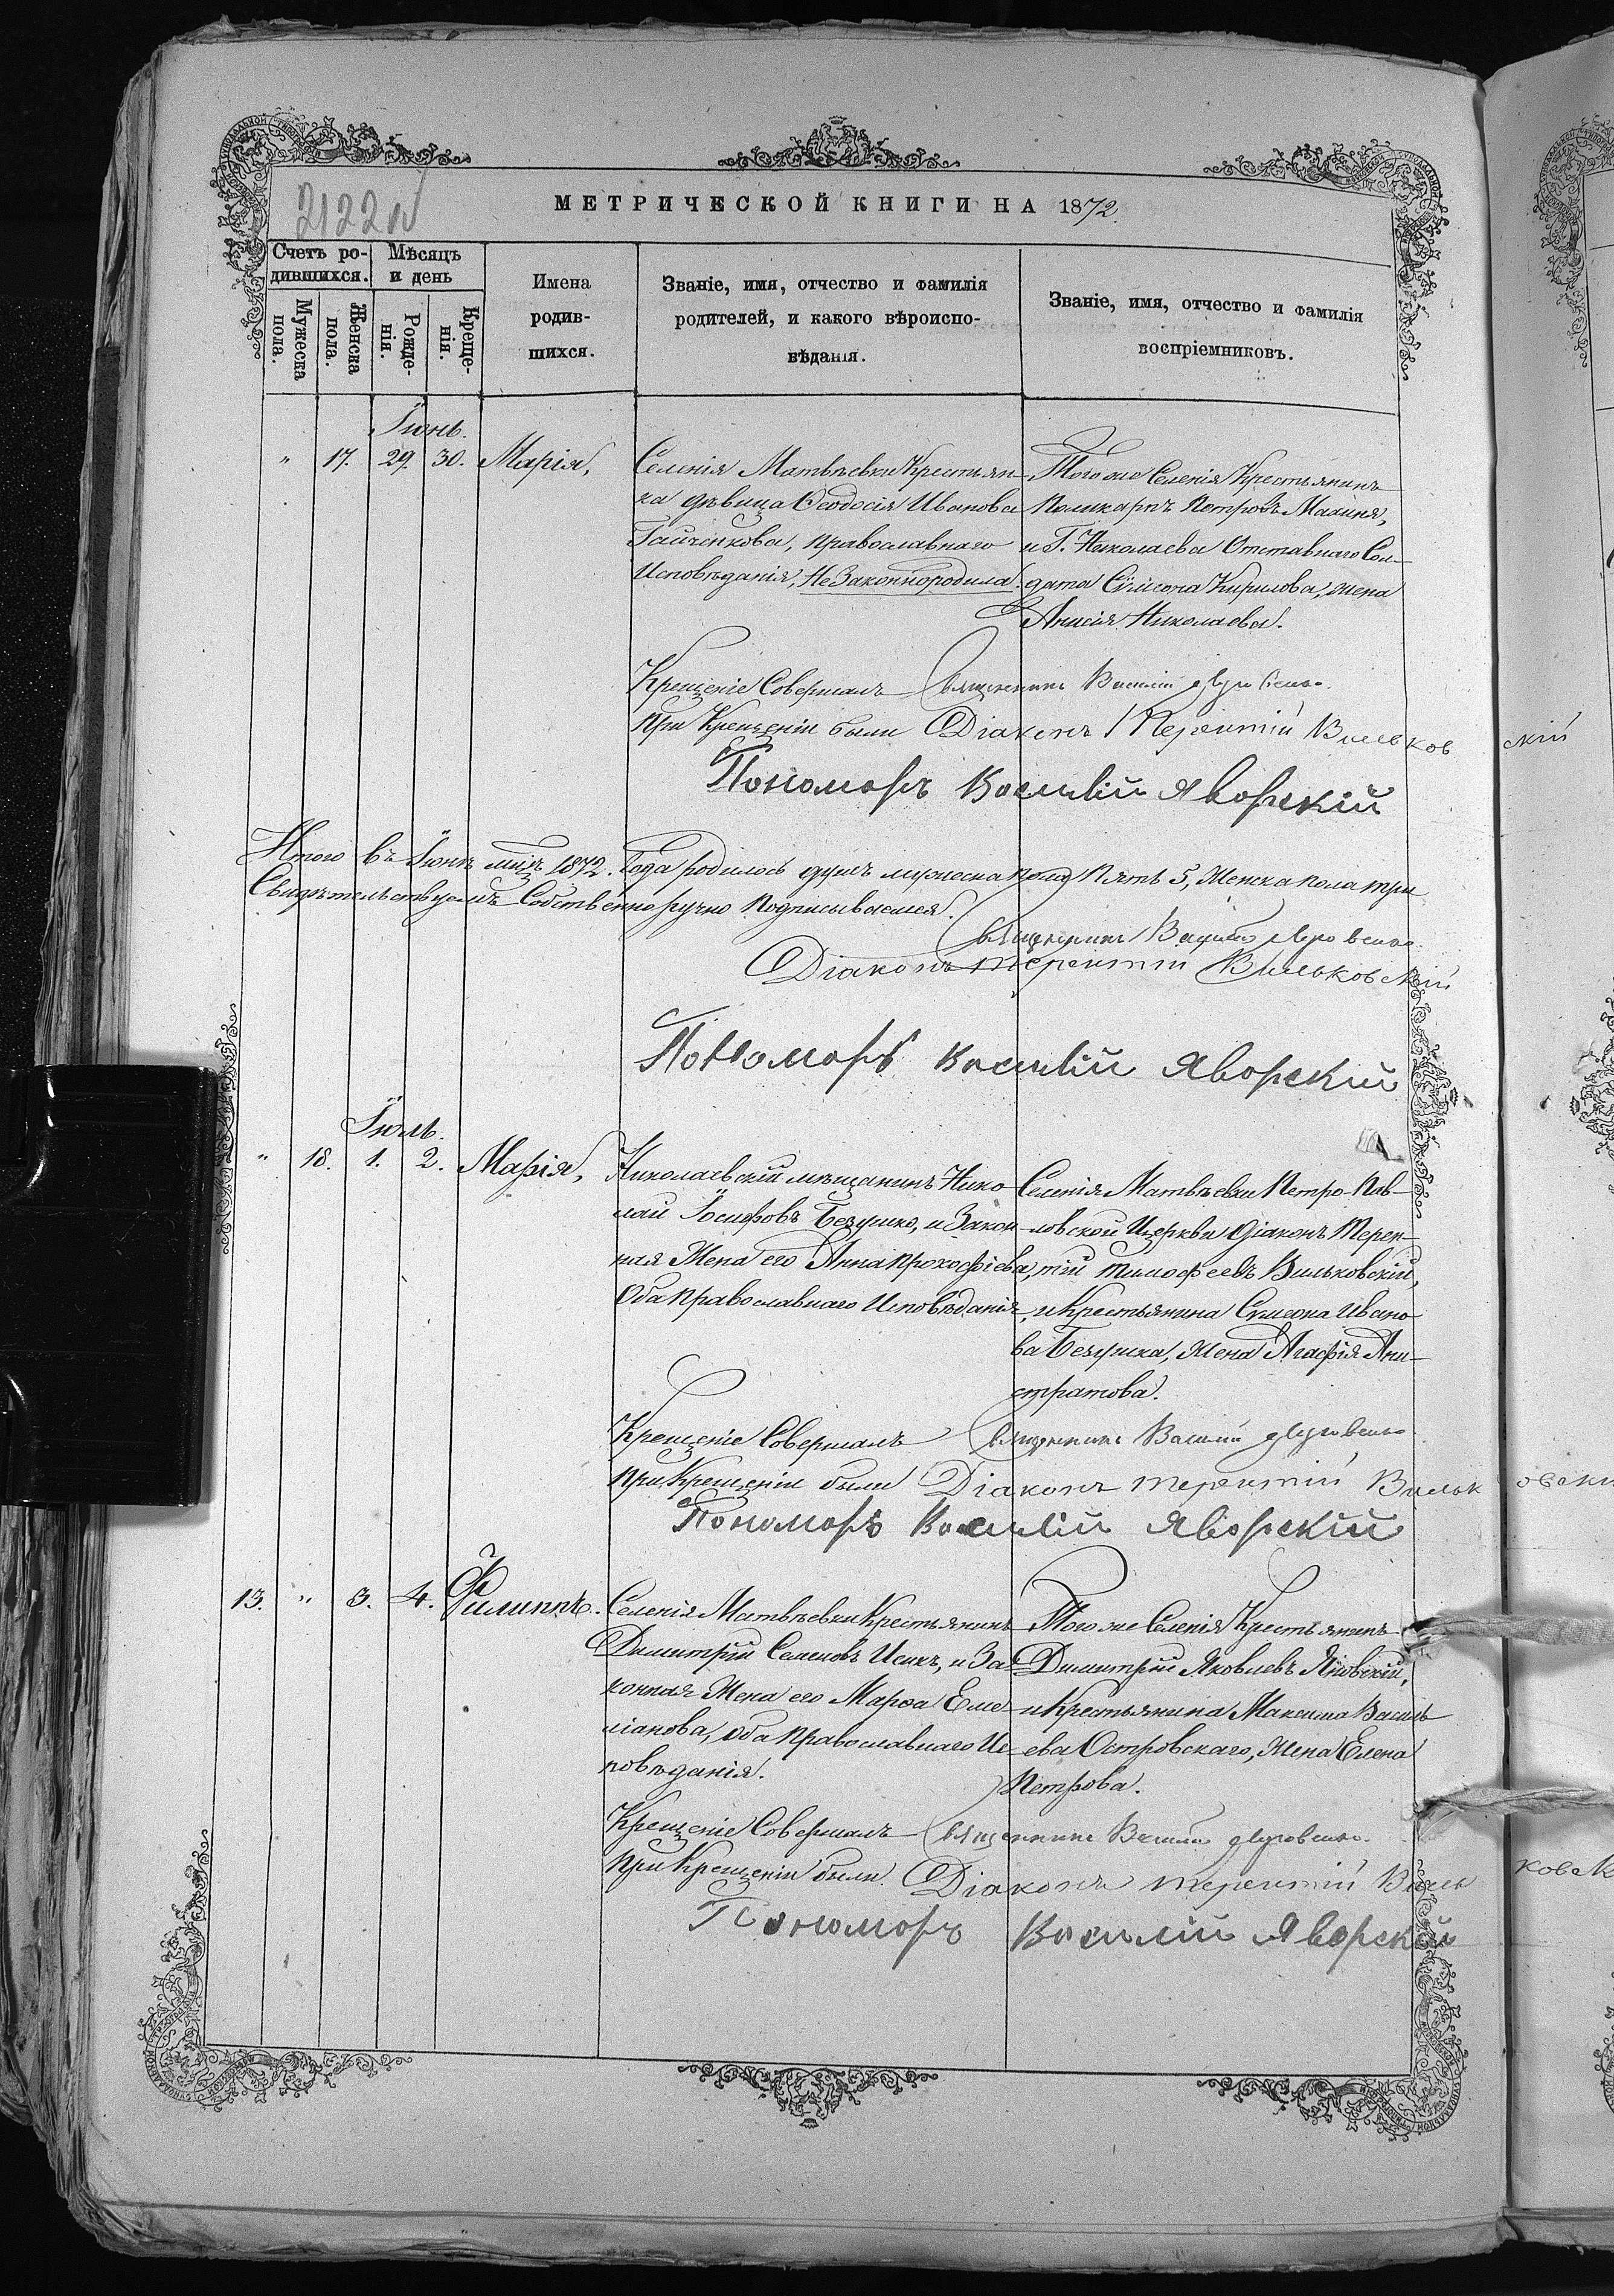 2122
МЕТРИЧЕСКОЙ КНИГИ НА 1872.
Счетъ ро-
дившихся.
Мѣсяцъ
и день
Мужеска
пола.
Женска
пола.
Рожде-
нія.
Креще-
нія.
Имена
родив-
шихся.
Званіе, имя, отчество и фамилія
родителей, и какого вѣроиспо-
вѣданія.
Званіе, имя, отчество и фамилія
воспріемниковъ.
Іюнь.
" 17. 29. 30. Марія,
Селенія Матвѣевки Крестьян-
ка дѣвица Ѳеодосія Иванова
Гайченкова, православнаго
Исповѣданія, Незаконнородила.
Того же Селенія Крестьянинъ
Поликарпъ Петровъ
и Г. Николаева Отставнаго Сол-
дата Сѵмеона Кирилова, жена
Анисія Николаева.
Крещеніе Совершалъ Священникъ Василій
При Крещеніи были Діаконъ Терентій Вильковскій
Пономарь Василій Яворскій
Итого въ Іюнѣ мцѣ 1872. Года родилось душъ мужеска пола Пять 5, Женска пола три
Свидѣтельствуемъ Собственноручно Подписываемся.
Священникъ Василій
Діаконъ Терентій Вильковскій
Пономарь Василій Яворскій
Іюль.
" 18. 1. 2. Марія,
Николаевскій мѣщанинъ Нико-
лай Іосифовъ Безушко, и Закон-
ная Жена его Анна Прокофіева,
Оба Православнаго Исповѣданія
Селенія Матвѣевки Петро-Пав-
ловской Церкви Діаконъ Терен-
тій Тимофеевъ Вильковскій,
и Крестьянина Сѵмеона Ивано-
ва Безушка, Жена Агафія Ани-
стратова.
Крещеніе Совершалъ Священникъ Василій
При Крещеніи были Діаконъ Терентій Вильковскій
Пономарь Василій Яворскій
13. " 3. 4. Филиппъ.
Селенія Матвѣевки Крестьянинъ
Димитрій Семеновъ Исикъ, и За-
конная Жена его Марѳа Еме-
ліанова, оба Православнаго Ис-
повѣданія.
Того же Селенія Крестьянинъ
Димитрій Яковлевъ Яновскій,
и Крестьянина Максима Василь-
ева Островскаго, Жена Елена
Петрова.
Крещеніе Совершалъ Священникъ Василій
При Крещеніи были Діаконъ Терентій Вильковск
Пономарь Василій Яворскій